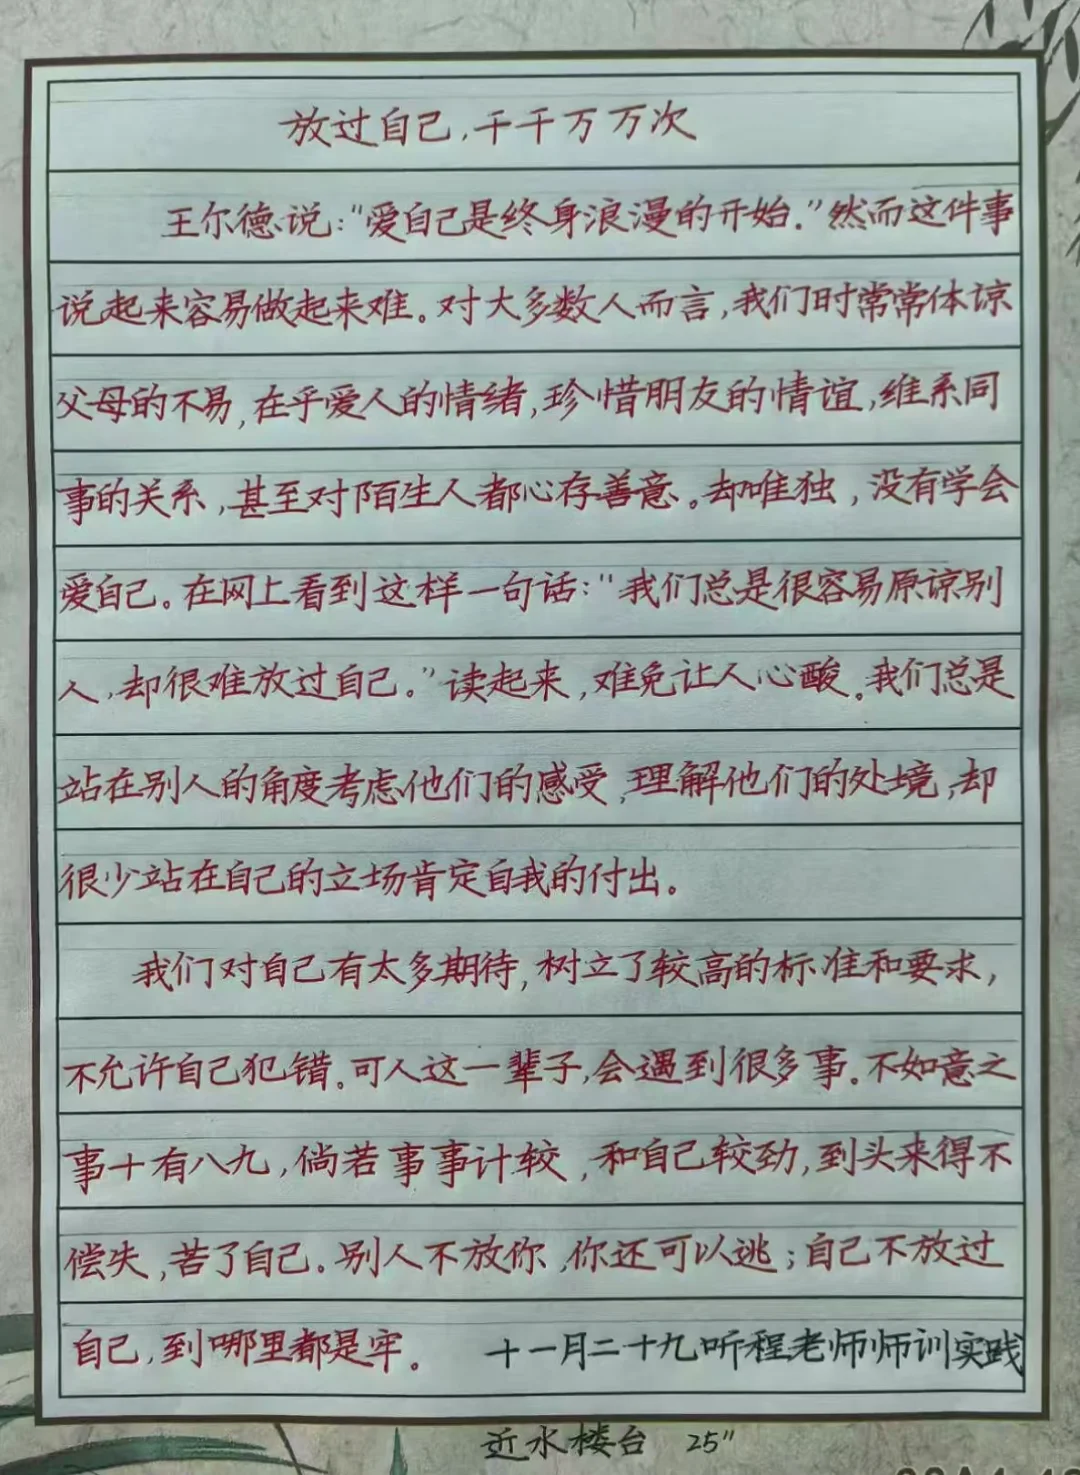 放过自己,千千万万次
王尔德说:"爱自己是终身浪漫的开始."然而这件事
说起来容易做起来难。对大多数人而言,我们时常常体谅
父母的不易,在乎爱人的情绪,珍惜朋友的情谊,维系同
事的关系,甚至对陌生人都心存善意。却唯独,没有学会
爱自己。在网上看到这样一句话:"我们总是很容易原谅别
人,却很难放过自己。"读起来,难免让人心酸。我们总是
站在别人的角度考虑他们的感受,理解他们的处境,却
很少站在自己的立场肯定自我的付出。
我们对自己有太多期待,树立了较高的标准和要求,
不允许自己犯错。可人这一辈子,会遇到很多事。不如意之
事十有八九,倘若事事计较,和自己较劲,到头来得不
偿失,苦了自己。别人不放你,你还可以逃;自己不放过
自己,到哪里都是牢。 十一月二十九听程老师师训实践
近水楼台 25"